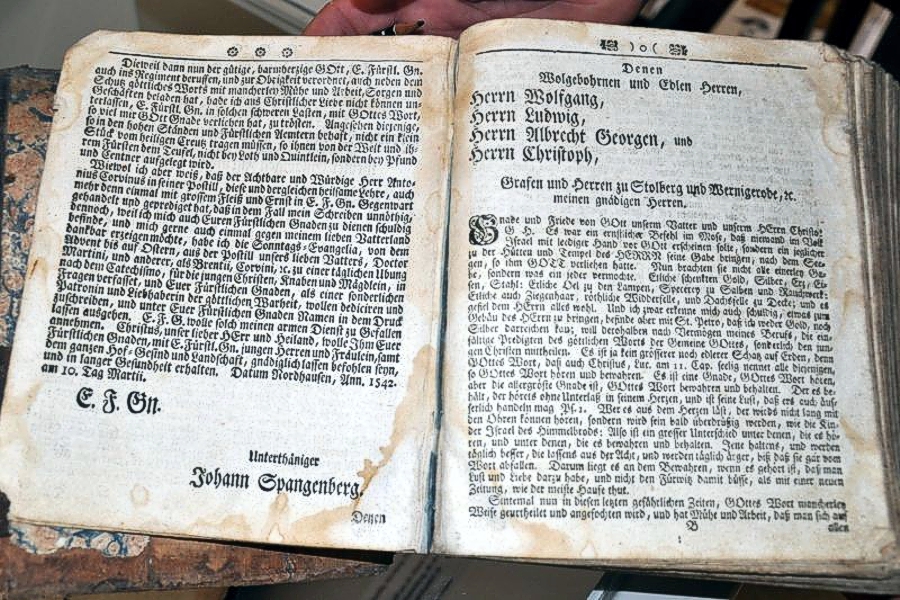 Dieweil dann nun der gütige, barmhertzige GOtt, E. Fürstl. Gn.
auch ins Regiment beruffen, und zur Obrigkeit verordnet, auch neben dem
Schutz göttliches Worts mit mancherley Mühe und Arbeit, Sorgen und
Geschäfften beladen hat, habe ich aus Christlicher Liebe nicht können un-
terlassen, E. Fürstl. Gn. in solchen schweren Lasten, mit GOttes Wort,
so viel mir GOtt Gnade verliehen hat, zu trösten. Angesehen diejenige,
so in den hohen Ständen und Fürstlichen Aemtern behaft, nicht ein klein
Stück vom heiligen Creutz tragen müssen, so ihnen von der Welt und ih-
rem Fürsten dem Teufel, nicht bey Loth und Quintlein, sondern bey Pfund
und Centner aufgelegt wird.
Wiewol ich aber weiß, daß der Achtbare und Würdige Herr Anto-
nius Corvinus in seiner Postill, diese und dergleichen heilsame Lehre, auch
mehr denn einmal mit grossem Fleiß und Ernst in E. F. Gn. Gegenwart
gehandelt und geprediget hat, daß in dem Fall mein Schreiben unnöthig,
dennoch, weil ich mich auch Euren Fürstlichen Gnaden zu dienen schuldig
befinde, und mich gerne auch einmal gegen meinem lieben Vatterland
dankbar erzeigen möchte, habe ich die Sonntags-Evangelia, von dem
Advent bis auf Ostern, aus der Postill unsers lieben Vatters, Doctor
Martini, und anderer, als Brentii, Corvini, ꝛc. zu einer täglichen Übung
nach dem Catechismo, für die jungen Christen, Knaben und Mägdlein, in
Fragen verfasset, und Euer Fürstlichen Gnaden, als einer sonderlichen
Patronin und Liebhaberin der göttlichen Warheit, wollen dediciren und
zuschreiben, und unter Euer Fürstlichen Gnaden Namen in dem Druck
lassen ausgehen. E. F. G. wolle solch meinen armen Dienst zu Gefallen
annehmen. Christus, unser lieber HErr und Heiland, wolle Ihm Euer
Fürstlichen Gnaden, mit E. Fürstl. Gn. jungen Herren und Fräulein, samt
dem ganzen Hof-Gesind und Landschafft, gnädiglich lassen befohlen seyn,
und in langer Gesundheit erhalten. Datum Nordhausen, Ann. 1542.
am 10. Tag Martii.
E. F. Gn.
Unterthäniger
Johann Spangenberg.
Denen
) o (
Denen
Wolgebohrnen und Edlen Herren,
Herrn Wolfgang,
Herrn Ludwig,
Herrn Albrecht Georgen, und
Herrn Christoph,
Grafen und Herren zu Stolberg und Wernigerode, ꝛc.
meinen gnädigen Herren.
Gnade und Friede von GOtt unserm Vatter und unserm HErrn Christo!
G. H. Es war ein ernstlicher Befehl im Mose, daß niemand im Volk
Israel mit lediger Hand vor GOtt erscheinen solle, sondern ein jeglicher
zu der Hütten und Tempel des HERRN seine Gabe bringen, nach dem See-
gen, so ihm GOTT verliehen hatte. Nun brachten sie nicht alle einerley Ga-
be, sondern was ein jeder vermochte. Etliche schenkten Gold, Silber, Erz, Ei-
sen, Stahl: Etliche Oel zu den Lampen, Specerey zu Salben und Rauchwerk:
Etliche auch Ziegenhaar, röthliche Widderfelle, und Dachsfelle zu Decke; und es
gefiel dem HErrn alles wohl. Und ich zwar erkenne mich auch schuldig, etwas zum
Gebäu des HErrn zu bringen, befinde aber mit St. Petro, daß ich weder Gold, noch
Silber darreichen kan; will derohalben nach Vermögen meines Berufs, die ein-
fältige Predigten des göttlichen Worts der Gemeine GOttes, sonderlich den jun-
gen Christen mittheilen. Es ist ja kein grösserer noch edlerer Schatz auf Erden, denn
GOttes Wort, daß auch Christus, Luc. am 11. Cap. seelig nennet alle diejenigen,
so GOttes Wort hören und bewahren. Es ist eine Gnade, GOttes Wort hören,
aber die allergröste Gnade ist, GOttes Wort bewahren und behalten. Der es be-
hält, der hörets ohne Unterlaß in seinem Herzen, und ist seine Lust, daß ers auch äus-
serlich handeln mag Ps. 1. Wer es aus dem Herzen läst, der wirds nicht lang mit
den Ohren können hören, sondern wird sein bald überdrüßig werden, wie die Kin-
der Israel des Himmelbrods: Also ist ein grosser Unterschied unter denen, die es hö-
ren, und unter denen, die es bewahren und behalten. Jene haltens, und werden
täglich besser, die lassens aus der Acht, und werden täglich ärger, biß daß sie gar vom
Wort abfallen. Darum liegt es an dem Bewahren, wenn es gehört ist, daß man
Lust und Liebe darzu habe, und nicht den Fürwitz damit büsse, als mit einer neuen
Zeitung, wie der meiste Haufe thut.
Sintemal nun in diesen letzten gefährlichen Zeiten, GOttes Wort mancherley
Weise geurtheilet und angefochten wird, und hat Mühe und Arbeit, daß man sich auf
B
allen